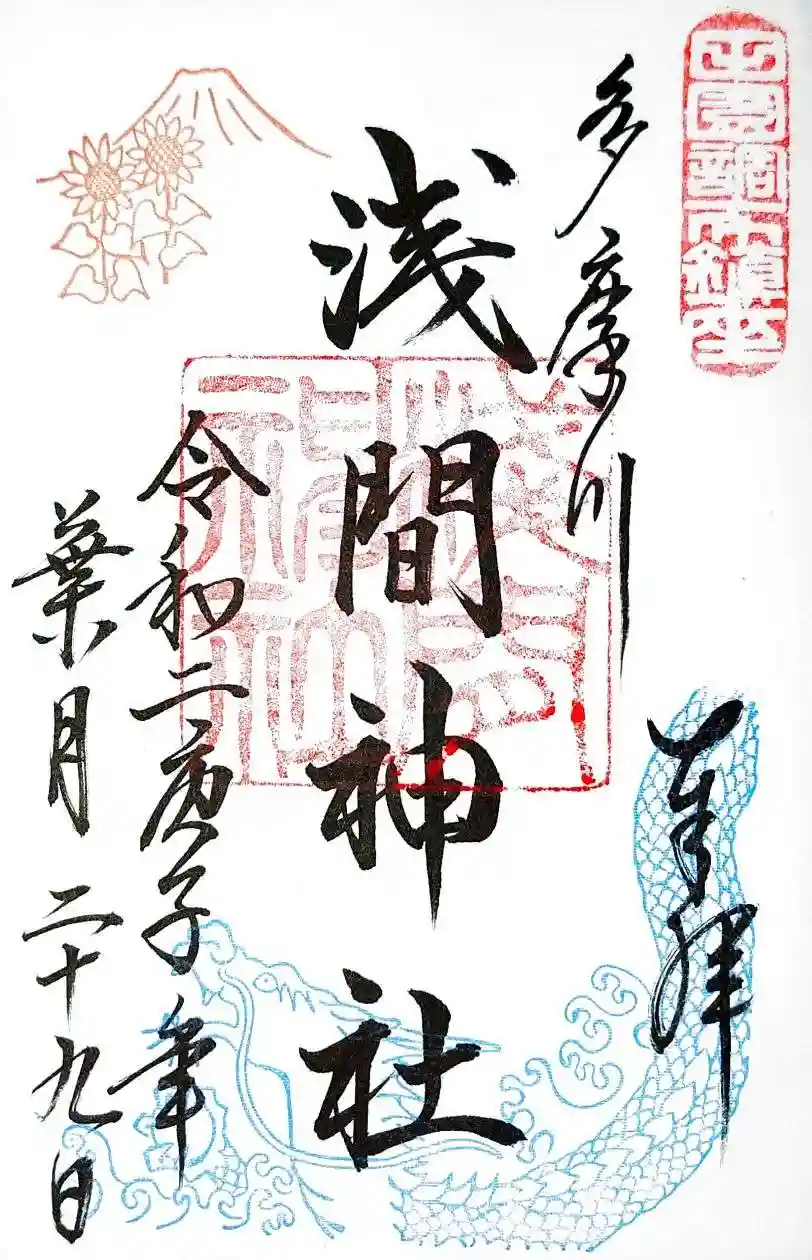 田園調布鎮座
奉拝
多摩川
浅間神社
淺間神社
令和二庚子年
葉月二十九日